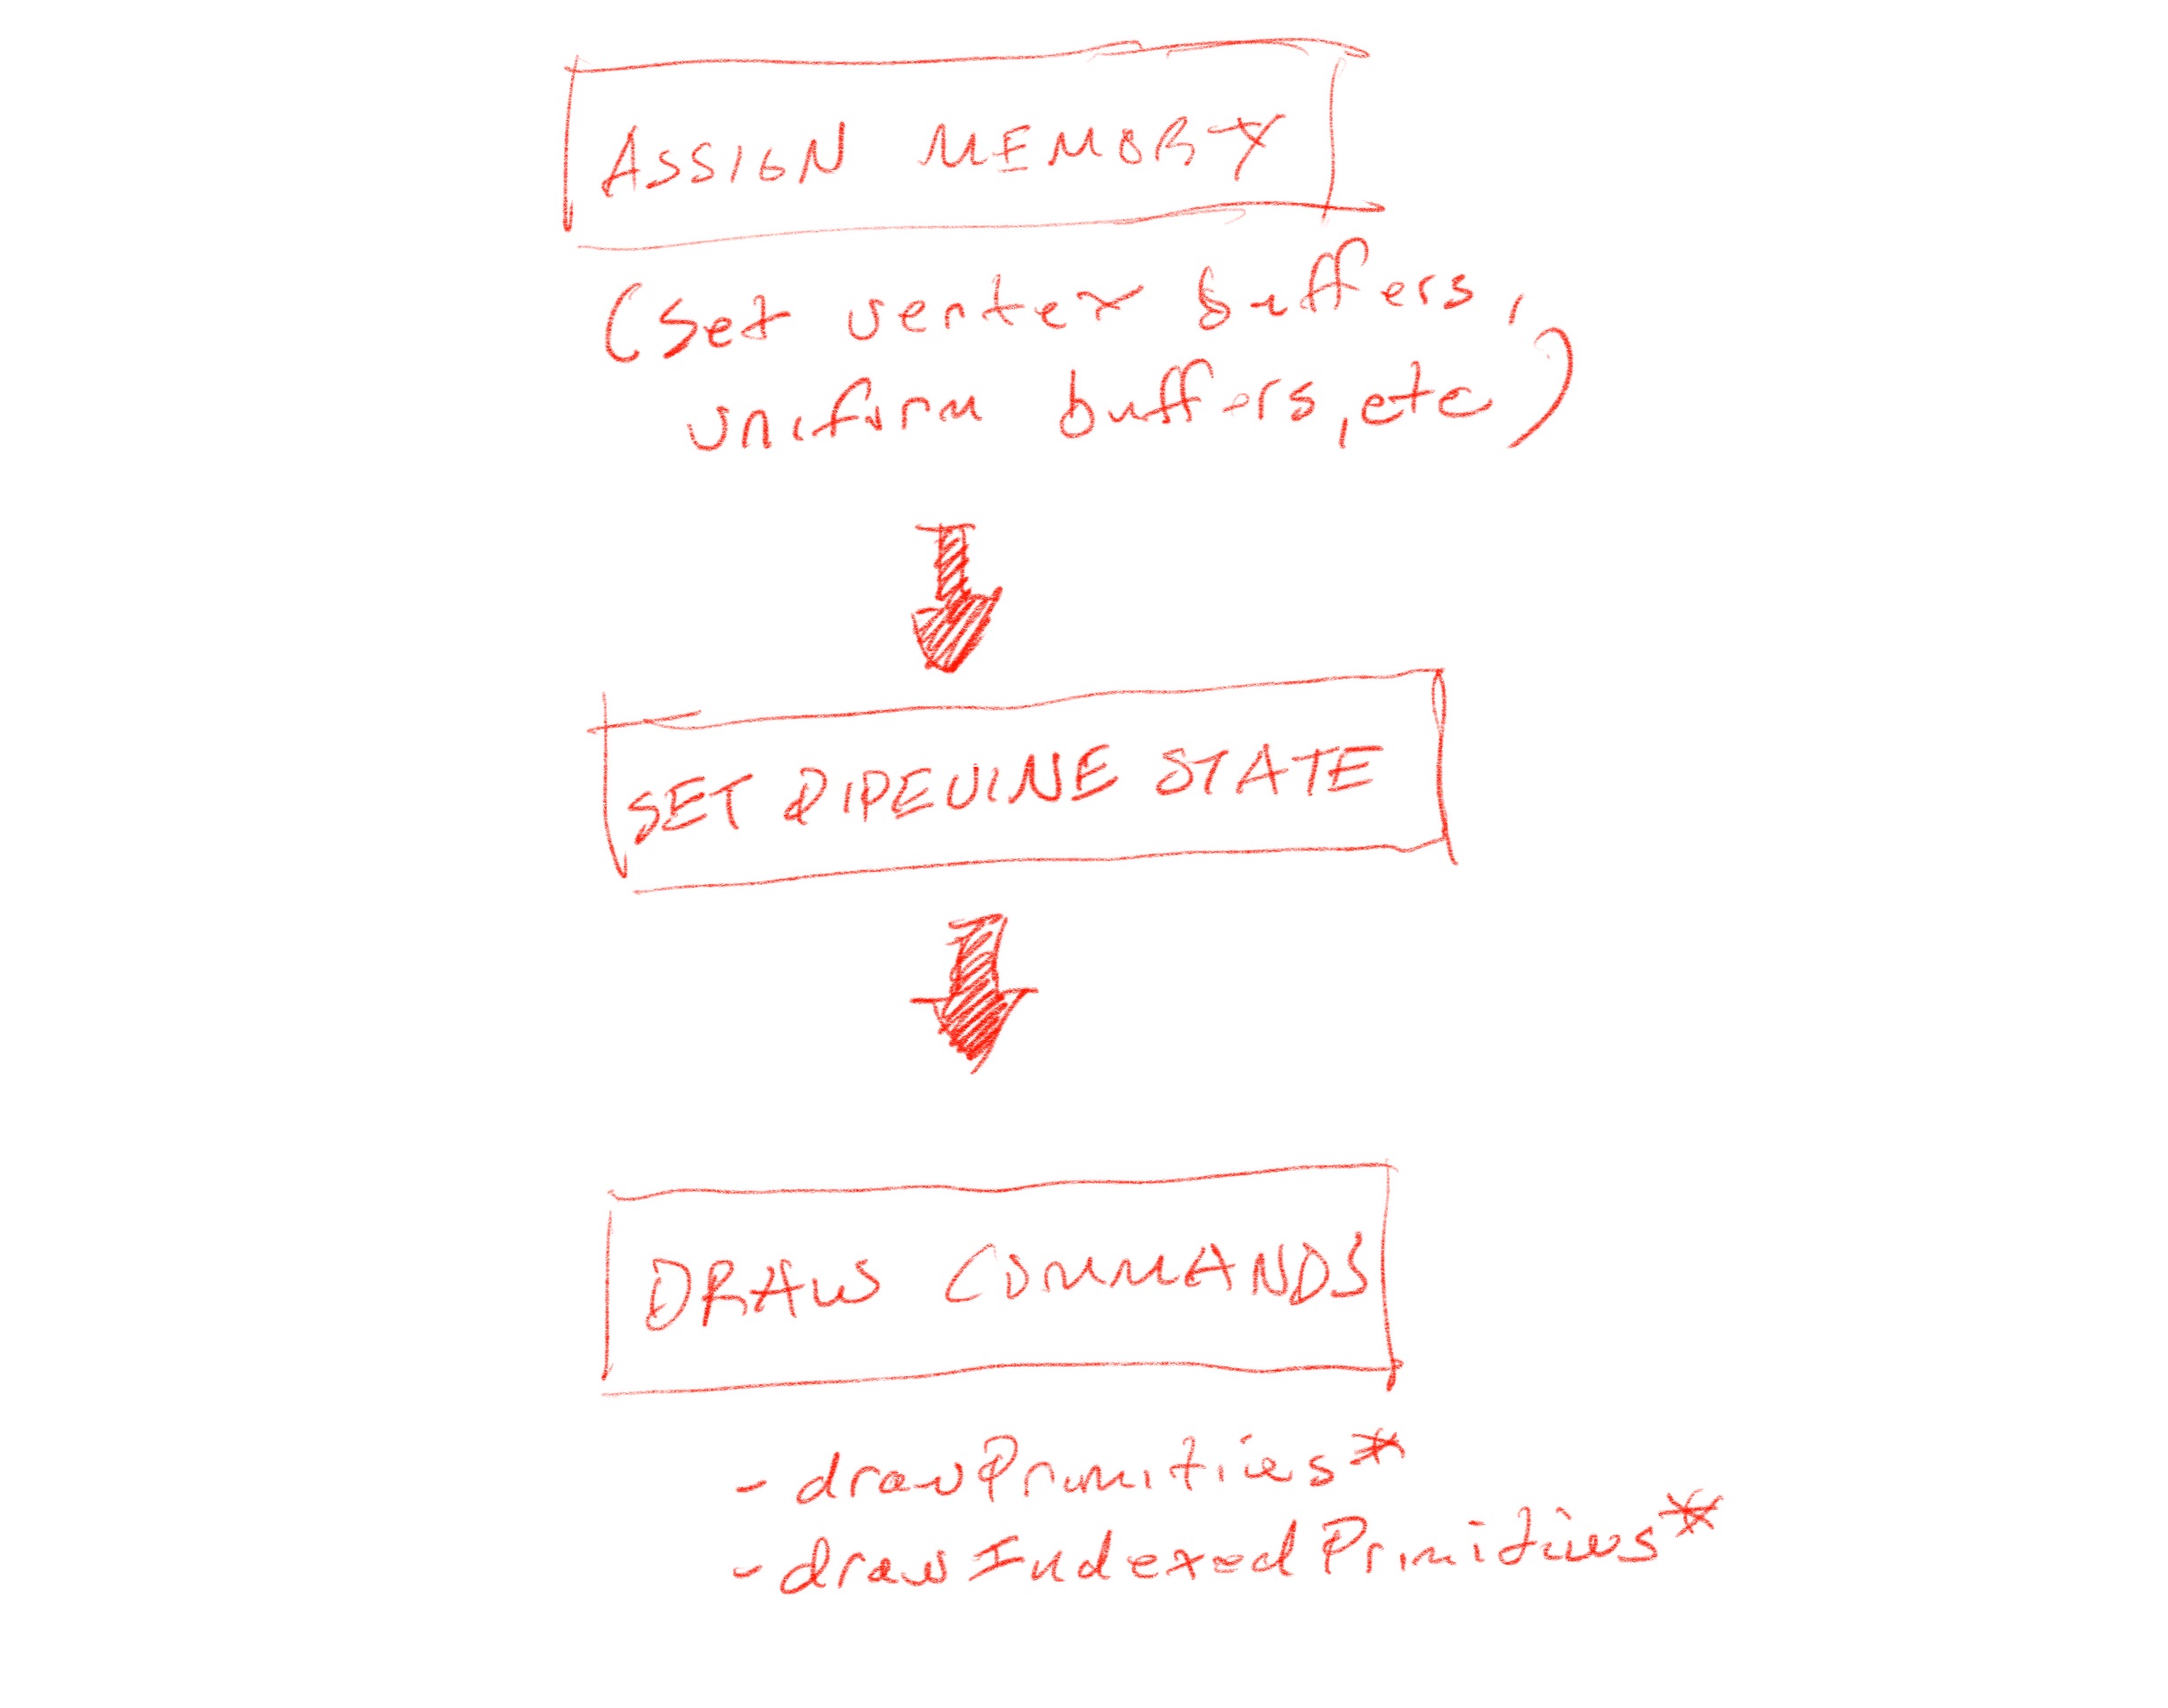 ASSIGN MEMORY
(Set vertex buffers,
uniform buffers, etc)
SET PIPELINE STATE
DRAW COMMANDS
- drawPrimitives*
- drawIndexedPrimitives*